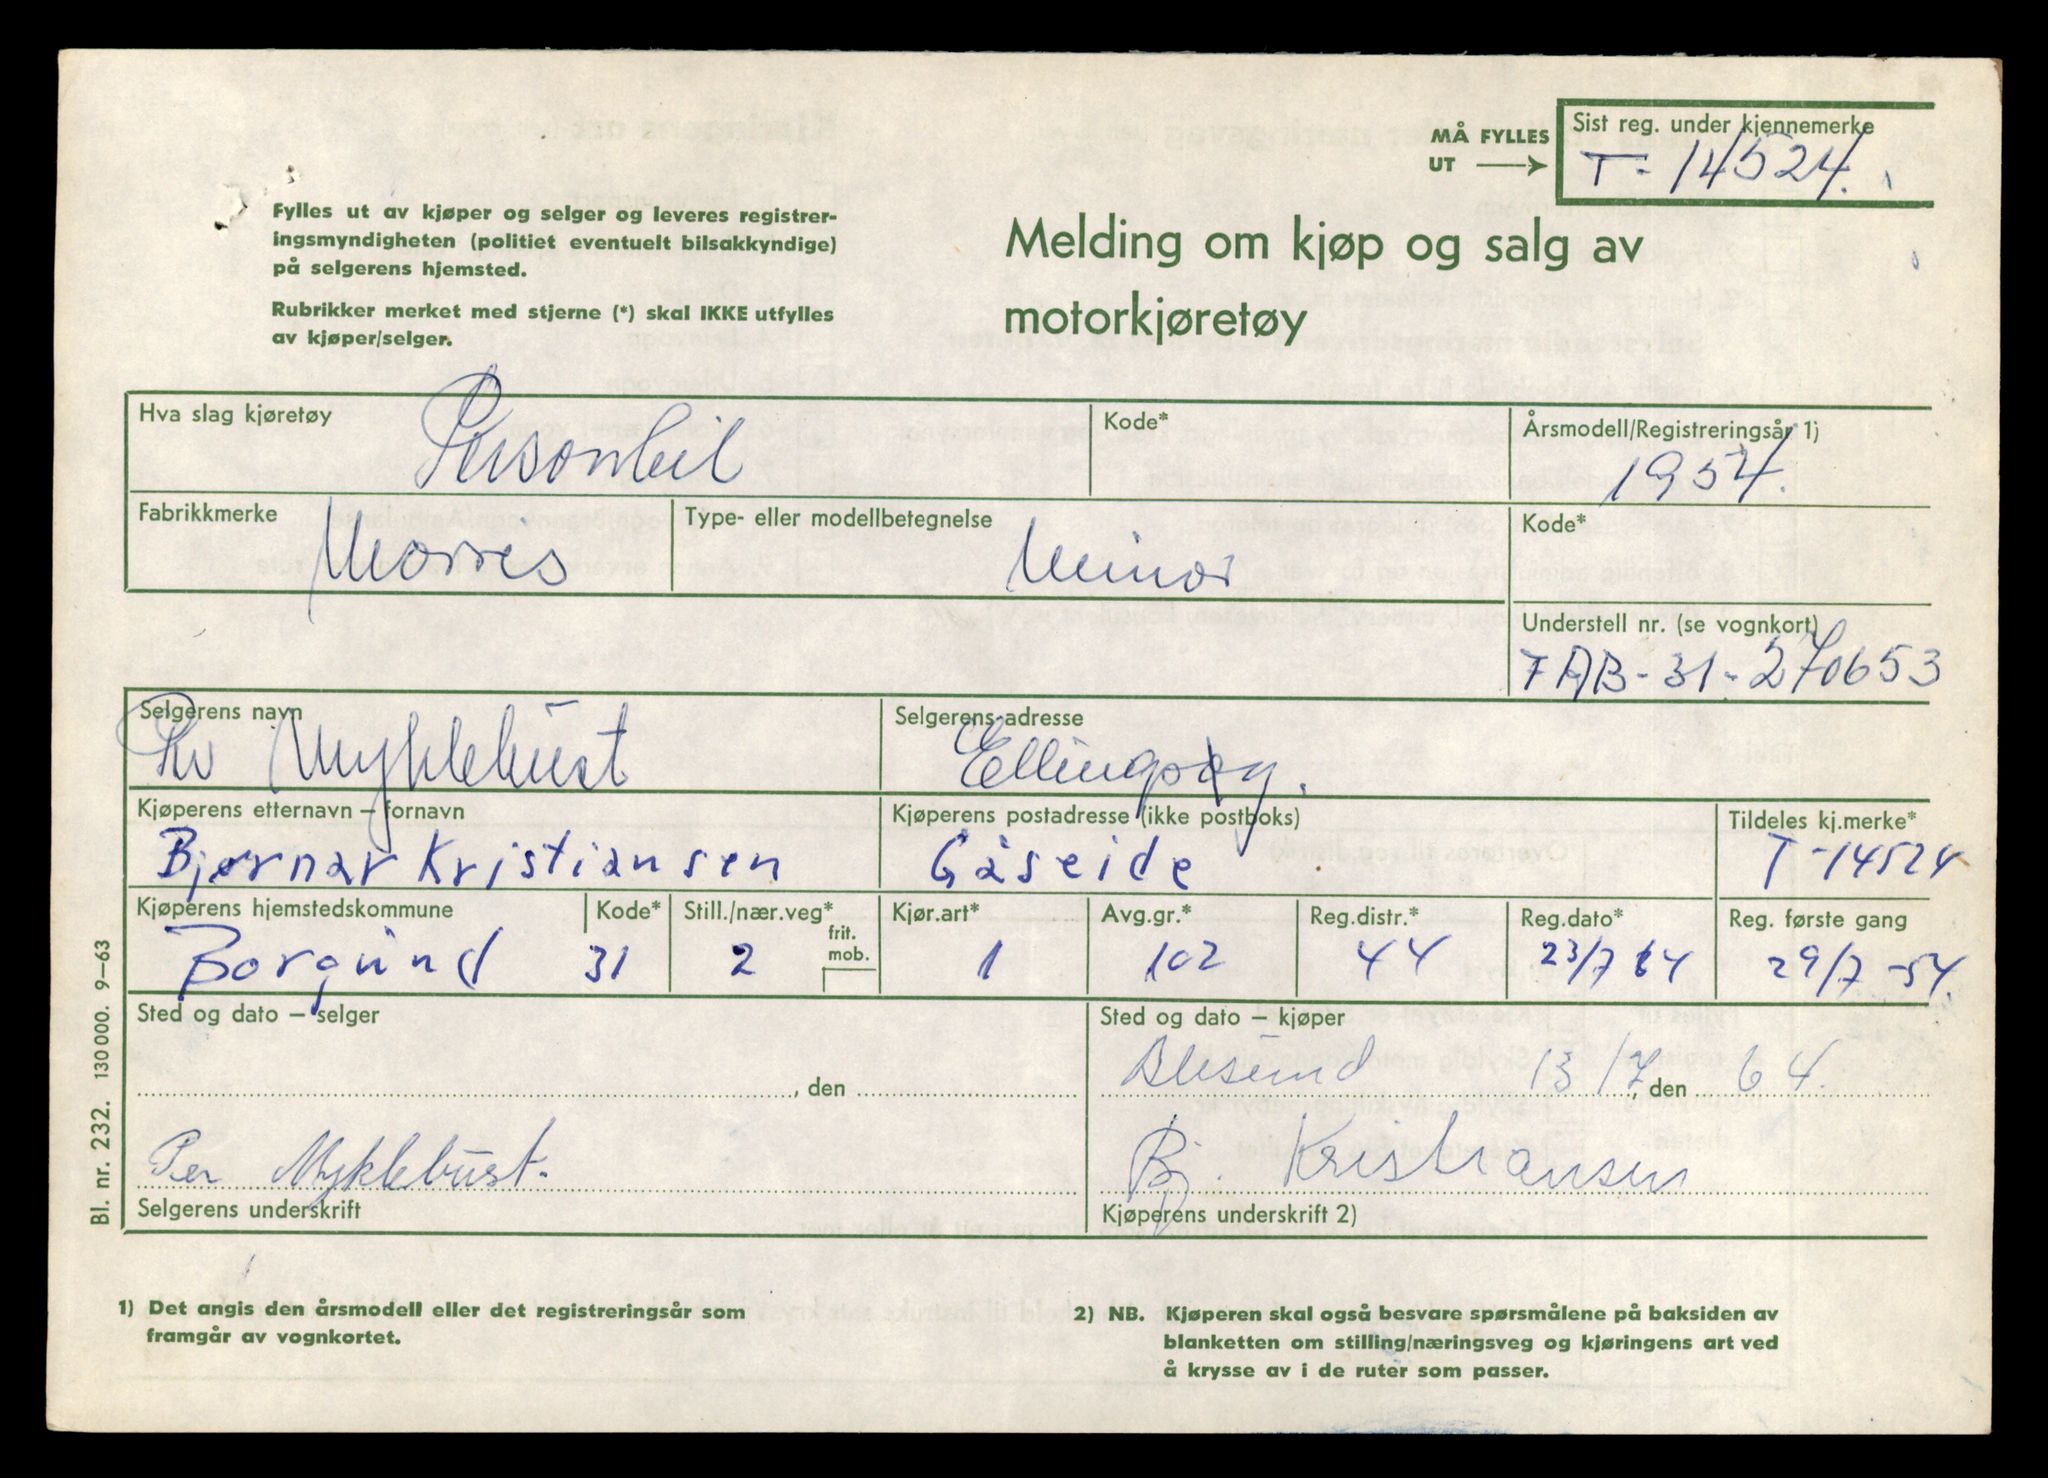 MÅ FYLLES
UT
Sist reg. under kjennemerke
T-14524.
Fylles ut av kjøper og selger og leveres registrer-
ingsmyndigheten (politiet eventuelt bilsakkyndige)
på selgerens hjemsted.
Rubrikker merket med stjerne (*) skal IKKE utfylles
av kjøper/selger.
Melding om kjøp og salg av
motorkjøretøy
Hva slag kjøretøy
Personbil
Kode*
Årsmodell/Registreringsår 1)
1954.
Fabrikkmerke
Morris
Type- eller modellbetegnelse
Minor
Kode*
Understell nr. (se vognkort)
FAB-31-270653
Selgerens navn
Per Myklebust
Selgerens adresse
Ellingsøy.
Kjøperens etternavn – fornavn
Bjørnar Kristiansen
Kjøperens postadresse (ikke postboks)
Gåseide
Tildeles kj.merke*
T-14524
Kjøperens hjemstedskommune
Borgund
Kode*
31
Still./nær.veg*
2
frit.
mob.
Kjør.art*
1
Avg.gr.*
102
Reg.distr.*
44
Reg.dato*
23/7 64
Reg. første gang
29/7-54.
Sted og dato – selger
, den
Sted og dato – kjøper
Ålesund 13/7, den 64.
Per Myklebust.
Selgerens underskrift
Bj. Kristiansen
Kjøperens underskrift 2)
Bl. nr. 232. 130 000. 9–63
1) Det angis den årsmodell eller det registreringsår som
framgår av vognkortet.
2) NB. Kjøperen skal også besvare spørsmålene på baksiden av
blanketten om stilling/næringsveg og kjøringens art ved
å krysse av i de ruter som passer.